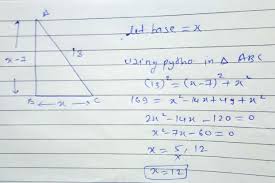 A
let base = x
13
using pytho in △ ABC
x-7
(13)² = (x-7)² + x²
169 = x² - 14x + 49 + x²
2x² - 14x - 120 = 0
B x C
x² - 7x - 60 = 0
x = 5, 12
x
x = 12